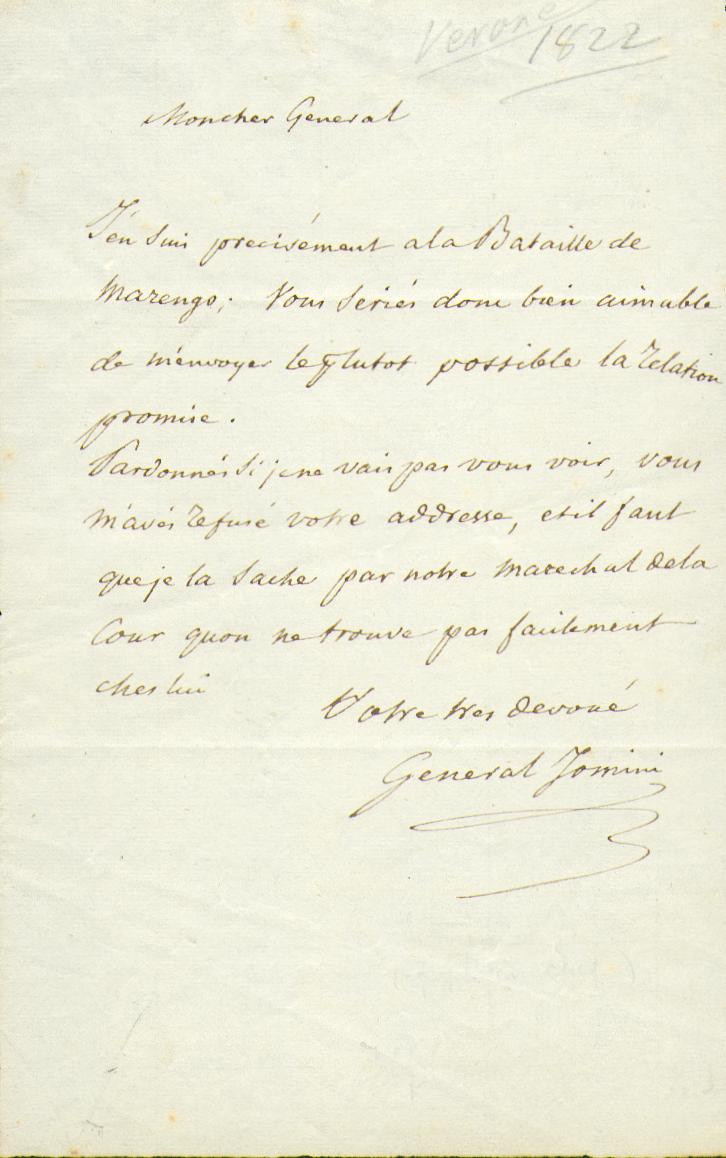 Verone
1822
Moncher General
J'en suis precisément a la Bataille de
Marengo; Vous seriés donc bien aimable
de m'envoyer le plutot possible la relation
promise.
Pardonnés si je ne vais pas vous voir, vous
m'avés refusé votre addresse, et il faut
que je la sache par notre marechal de la
Cour quon ne trouve pas facilement
ches lui
Votre tres devoué
General Jomini